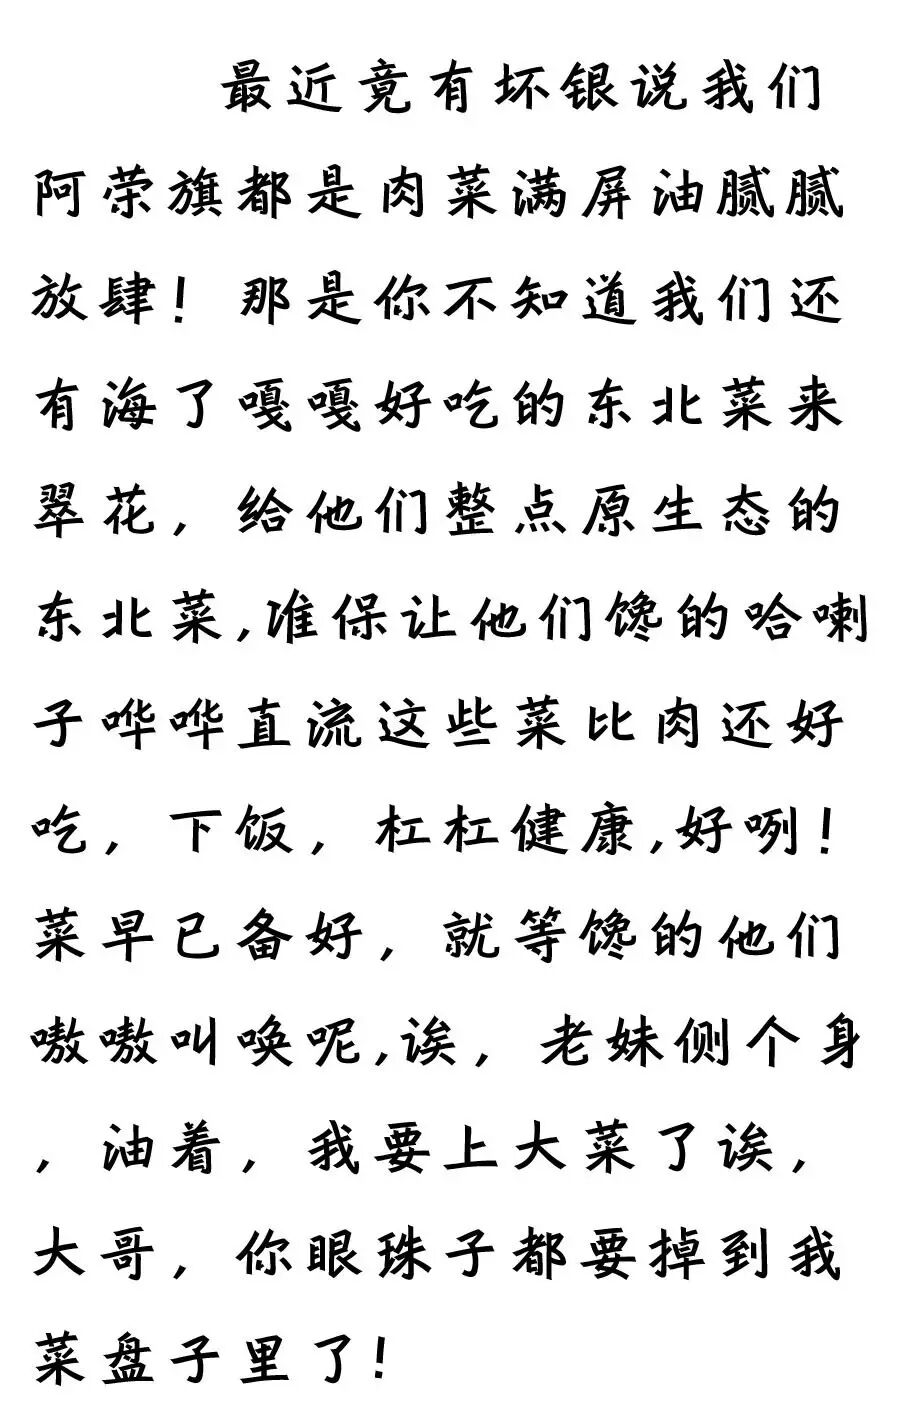 最近竟有坏银说我们
阿荣旗都是肉菜满屏油腻腻
放肆！那是你不知道我们还
有海了嘎嘎好吃的东北菜来
翠花，给他们整点原生态的
东北菜,准保让他们馋的哈喇
子哗哗直流这些菜比肉还好
吃，下饭，杠杠健康,好咧！
菜早已备好，就等馋的他们
嗷嗷叫唤呢,诶，老妹侧个身
，油着，我要上大菜了诶，
大哥，你眼珠子都要掉到我
菜盘子里了！